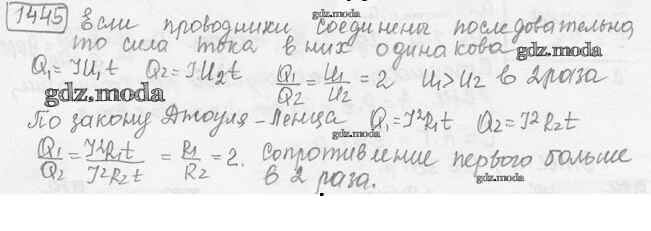 1445 Если проводники соединены последовательно
gdz.moda
то сила тока в них одинакова
gdz.moda
Q₁=IU₁t Q₂=IU₂t Q₁/Q₂=U₁/U₂=2 U₁>U₂ в 2 раза
gdz.moda
По закону Джоуля-Ленца Q₁=I²R₁t Q₂=I²R₂t
gdz.moda
Q₁/Q₂=I²R₁t/I²R₂t=R₁/R₂=2. Сопротивление первого больше
в 2 раза.
gdz.moda